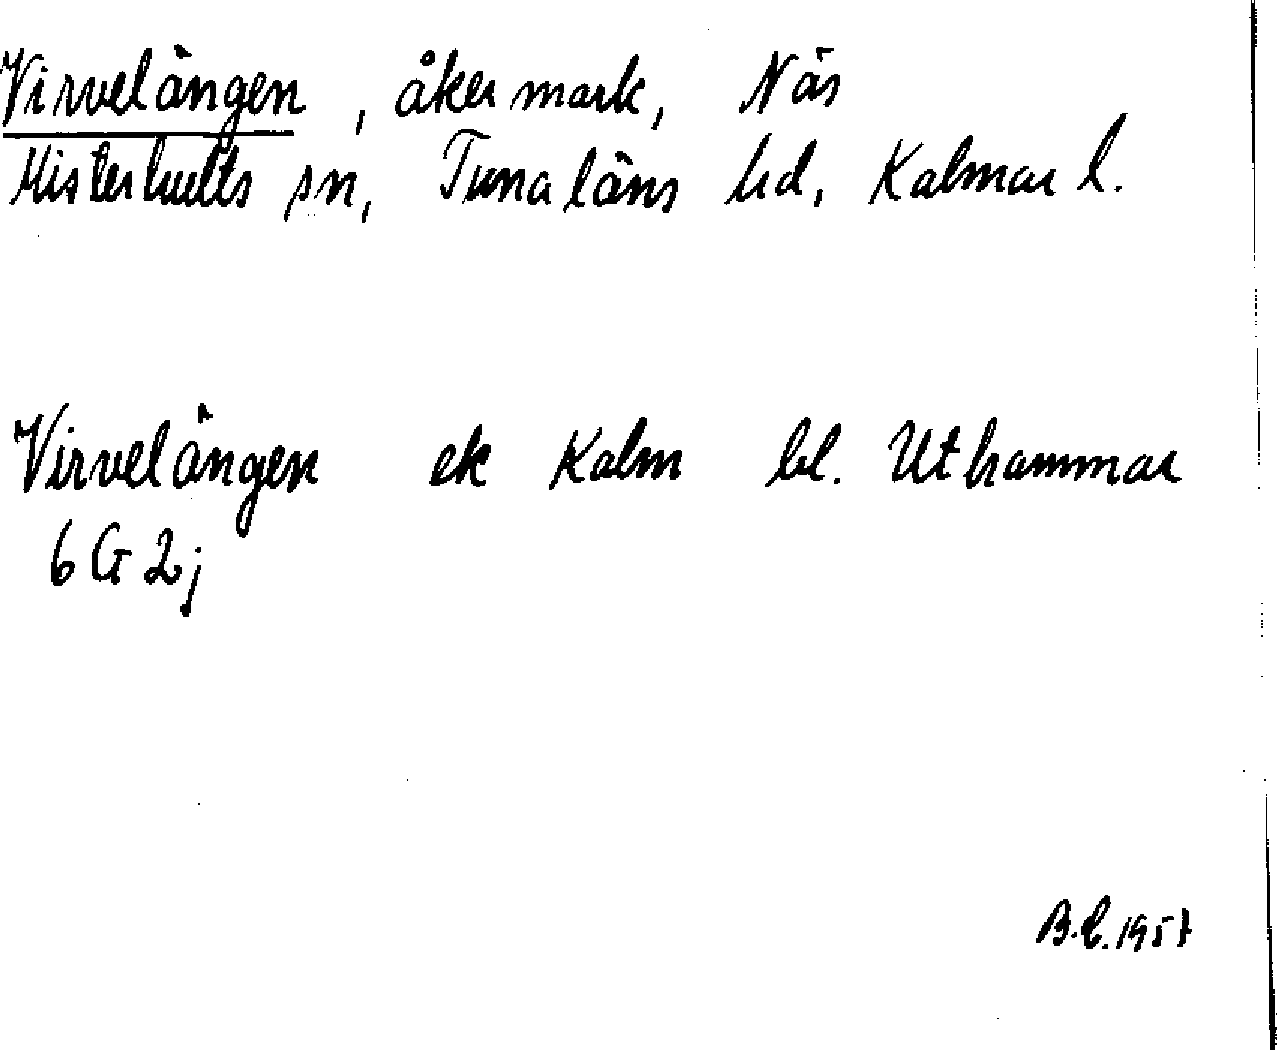 Virvelängen, åkermark, Näs
Misterhults sn, Tunaläns hd, Kalmar l.
Virvelängen ek Kalm bl. Uthammar
6G2j
B.L. 1957